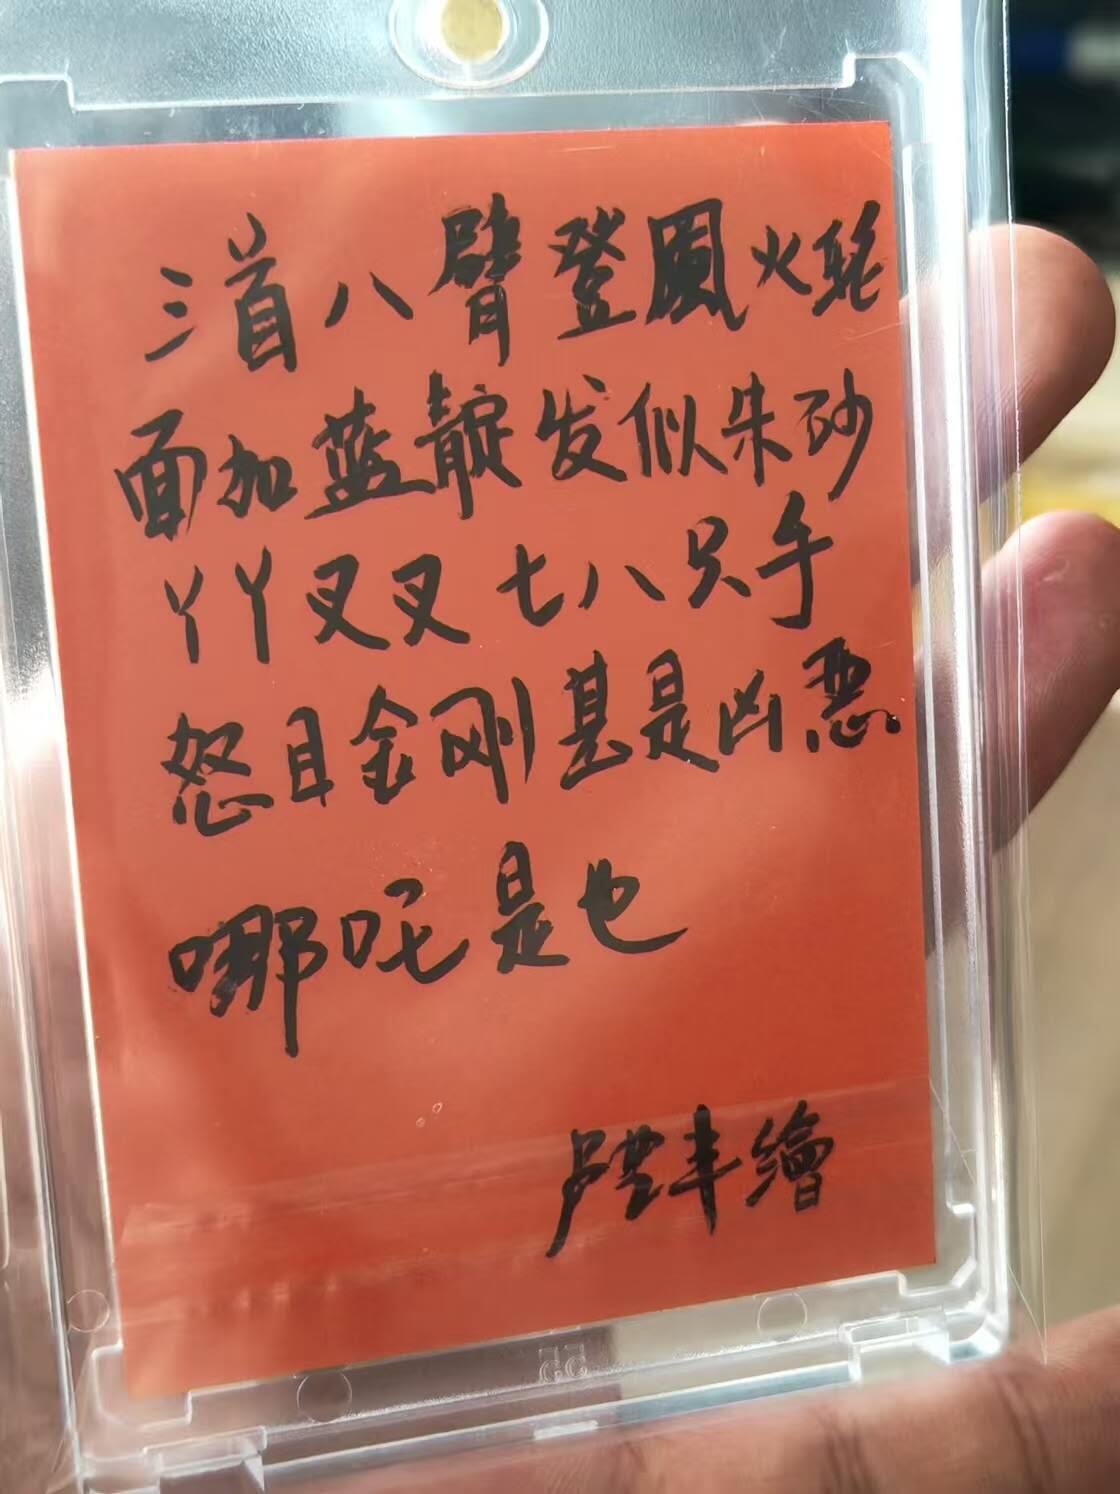 三首八臂登風火轮
面加蓝靛发似朱砂
丫丫叉叉七八只手
怒目金刚甚是凶恶
哪吒是也
卢世丰繪
55